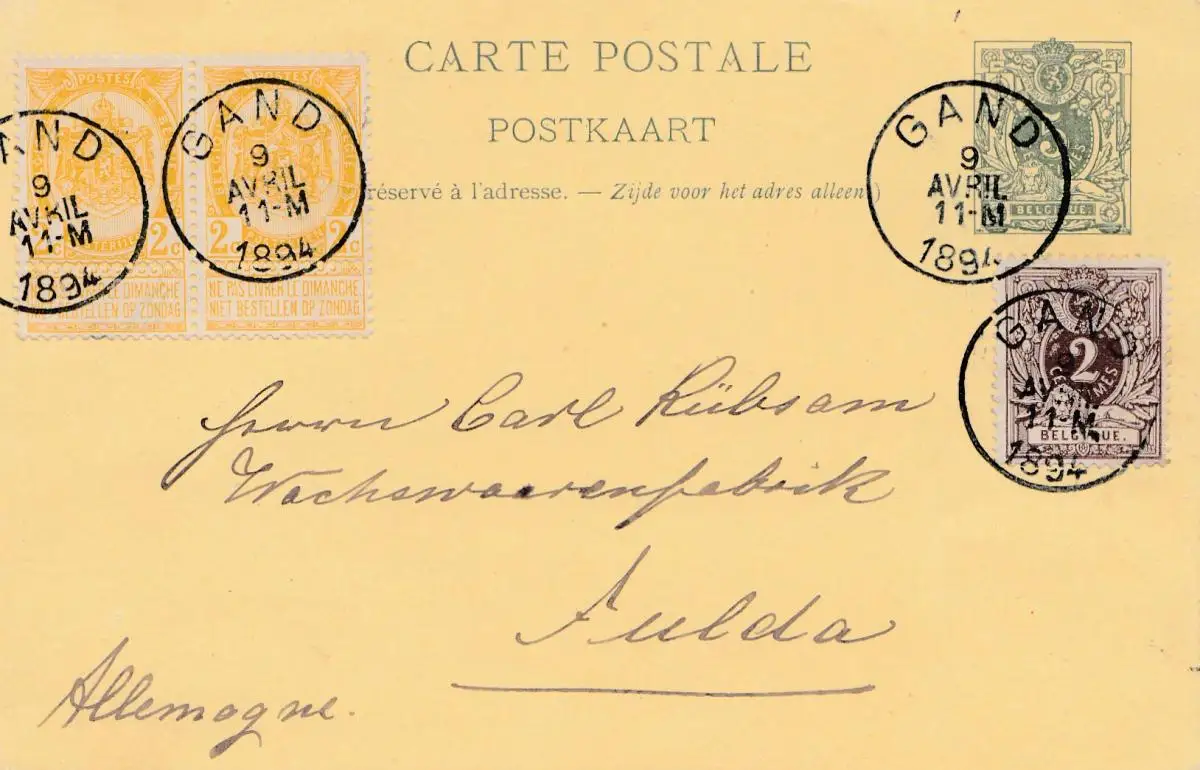 CARTE POSTALE
POSTKAART
réservé à l'adresse. — Zijde voor het adres alleen)
POSTES
2c 2c
LE DIMANCHE
BESTELLEN OP ZONDAG
POSTES
2c 2c
NE PAS LIVRER LE DIMANCHE
NIET BESTELLEN OP ZONDAG
AND
9
AVRIL
11-M
1894
GAND
9
AVRIL
11-M
1894
5
BELGIQUE.
GAND
9
AVRIL
11-M
1894
2
CENTIMES
BELGIQUE.
GAND
9
AVRIL
11-M
1894
Herrn Carl Rübsam
Wachswaarenfabrik
Fulda
Allemagne.